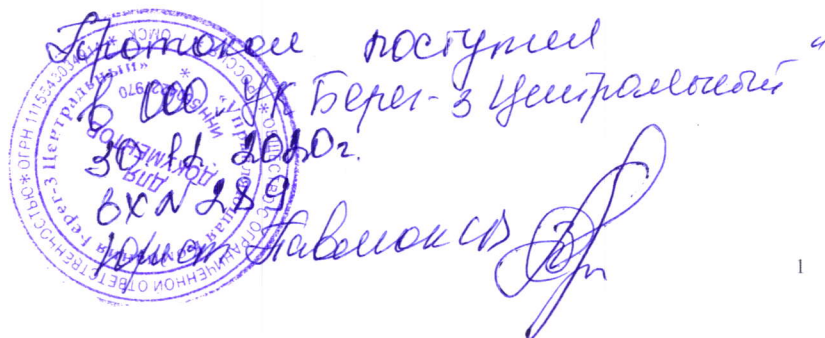 Протокол поступил
в ООО "УК Берег-3 Центральный"
30.12.2020г.
вх N 289
юрист Павлюк СВ
1
ОБЩЕСТВО С ОГРАНИЧЕННОЙ ОТВЕТСТВЕННОСТЬЮ * ОГРН
"Управляющая компания Берег-3 Центральный"
ДЛЯ
ДОКУМЕНТОВ